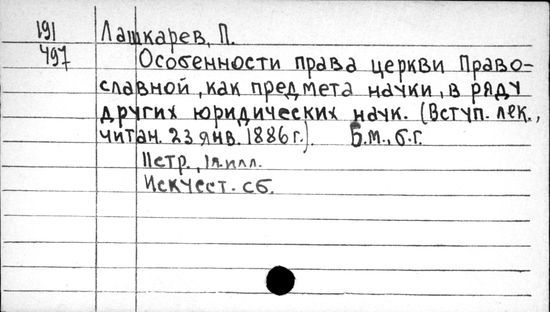 191 Лашкарев, П.
497 Особенности права церкви Право-
славной, как предмета науки, в ряду
других юридических наук. (Вступ. лек.,
читан. 23 янв. 1886 г.). Б.м., б.г.
Петр., 1я.илл.
Искчест. сб.